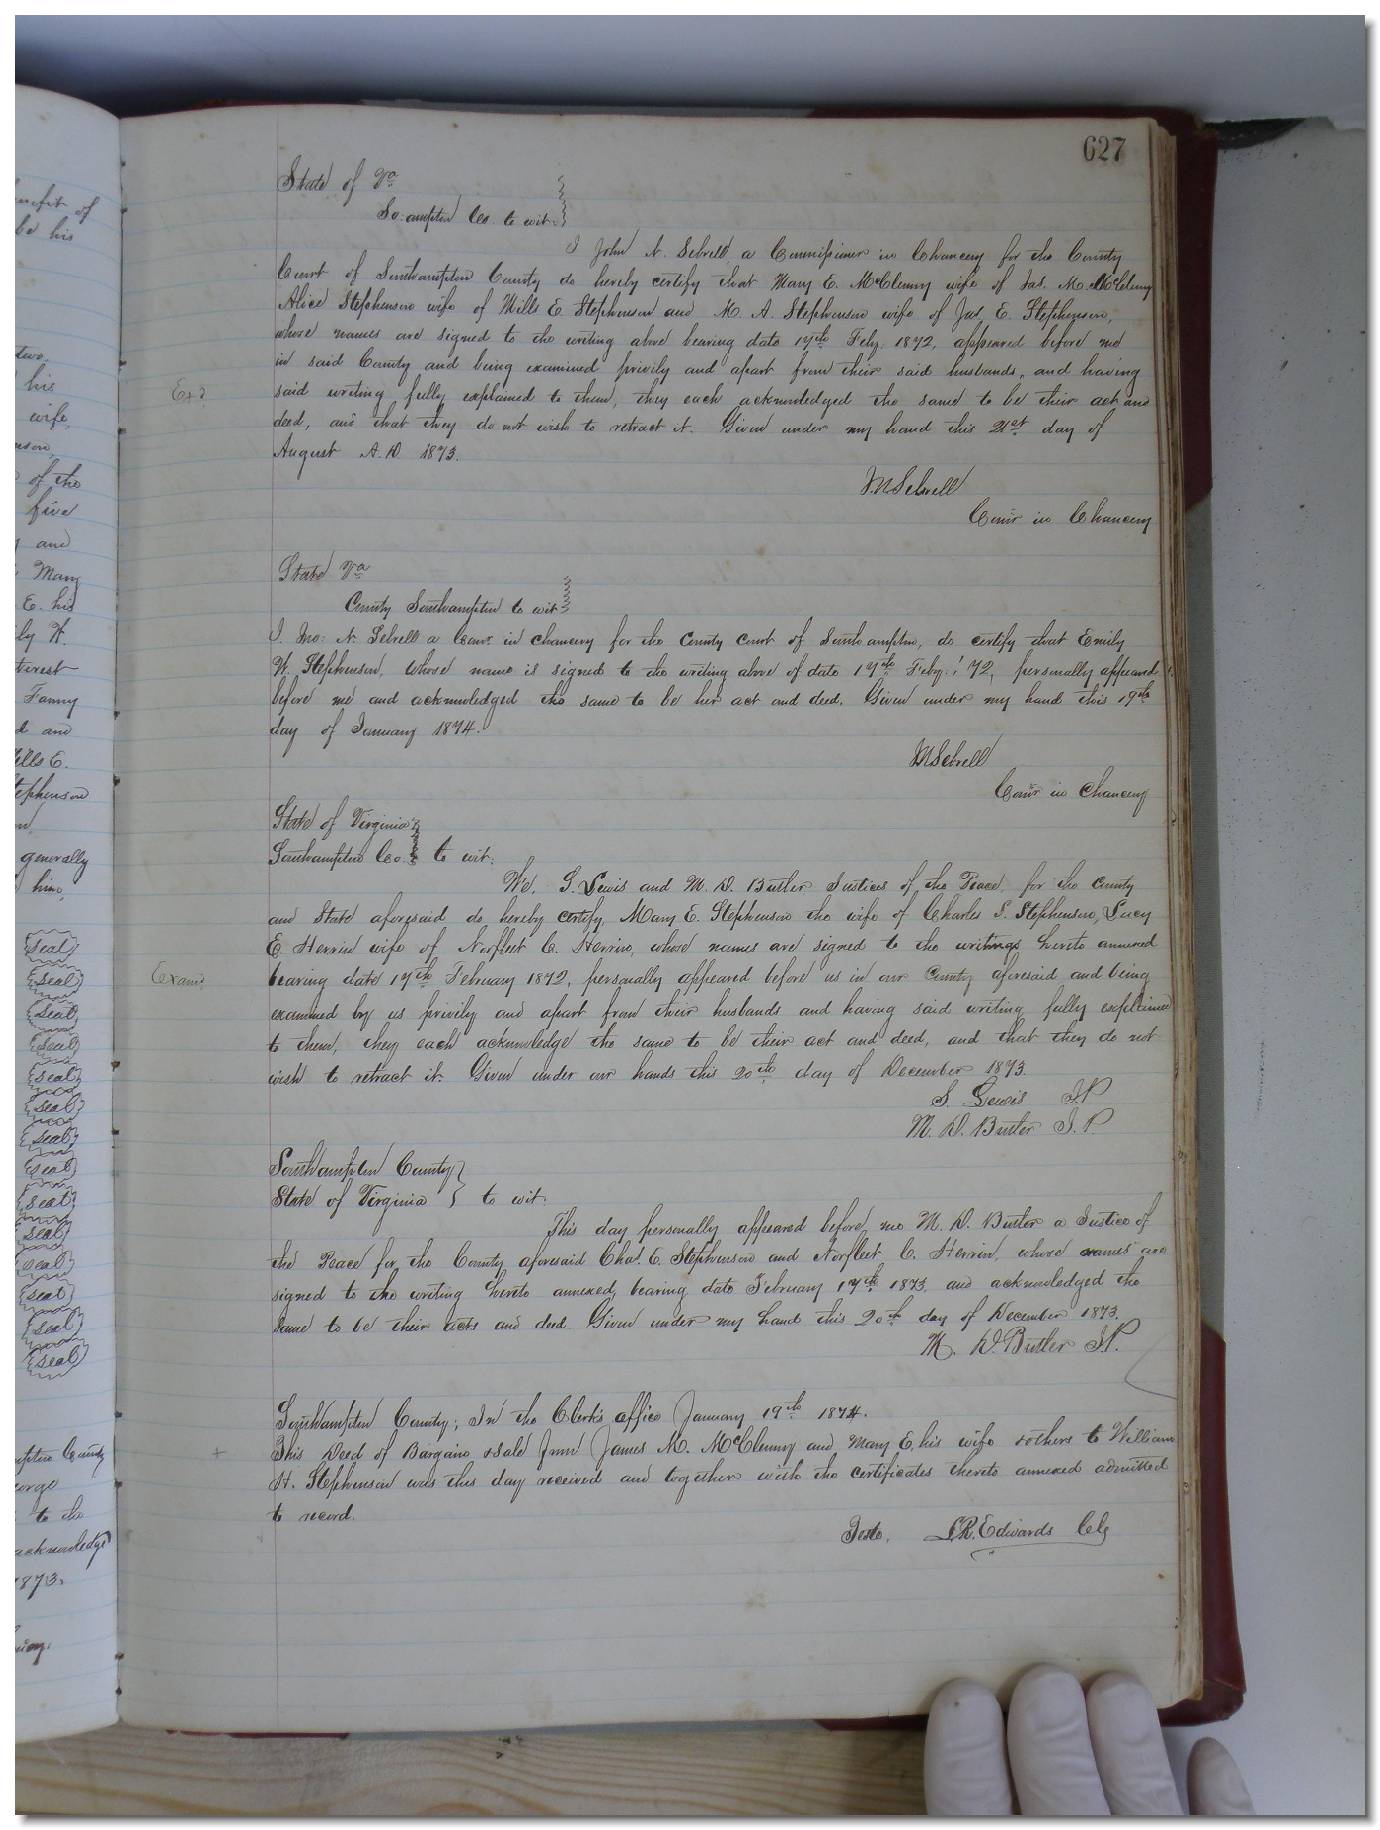 627
State of Va
So:ampton Co. to wit:
I John N. Sebrell a Commissioner in Chancery for the County
Court of Southampton County do hereby certify that Mary E. McClenny wife of Jas. M. McClenny
Alice Stephenson wife of Mills E Stephenson and M. A. Stephenson wife of Jas. E. Stephenson,
whose names are signed to the writing above bearing date 17th Feby. 1872, appeared before me
in said County and being examined privily and apart from their said husbands, and having
Exd
said writing fully explained to them, they each acknowledged the same to be their act and
deed, and that they do not wish to retract it. Given under my hand this 21st day of
August A.D. 1873.
JNSebrell
Comr in Chancery
State Va
County Southampton to wit
I. Jno: N. Sebrell a Comr. in chancery for the County Court of Southampton, do certify that Emily
W. Stephenson, whose name is signed to the writing above of date 17th Feby. '72, personally appeared
before me and acknowledged the same to be her act and deed. Given under my hand this 19th
day of January 1874.
JNSebrell
Comr in Chancery
State of Virginia
Southampton Co. to wit:
We, S. Lewis and M. D. Butler Justices of the Peace, for the County
and State aforesaid do hereby certify, Mary E. Stephenson the wife of Charles S. Stephenson, Lucy
E Herrin wife of Norfleet C. Herrin, whose names are signed to the writings hereto annexed
Examd
bearing date 17th February 1872, personally appeared before us in our County aforesaid and being
examined by us privily and apart from their husbands and having said writing fully explained
to them, they each acknowledge the same to be their act and deed, and that they do not
wish to retract it. Given under our hands this 20th day of December 1873.
S. Lewis J.P
M. D. Butler J.P.
Southampton County
State of Virginia to wit:
This day personally appeared before me M. D. Butler a Justice of
the Peace for the County aforesaid Chas. E. Stephenson and Norfleet C. Herrin, whose names are
signed to the writing hereto annexed, bearing date February 17th 1873, and acknowledged the
same to be their acts and deed. Given under my hand this 20th day of December 1873.
M. D. Butler J.P.
Southampton County; In the Clerk's office January 19th 1874.
This Deed of Bargain & Sale from James M. McClenny and Mary E. his wife & others to William
H. Stephenson was this day received and together with the certificates thereto annexed admitted
to record.
Teste, L.R. Edwards Clk